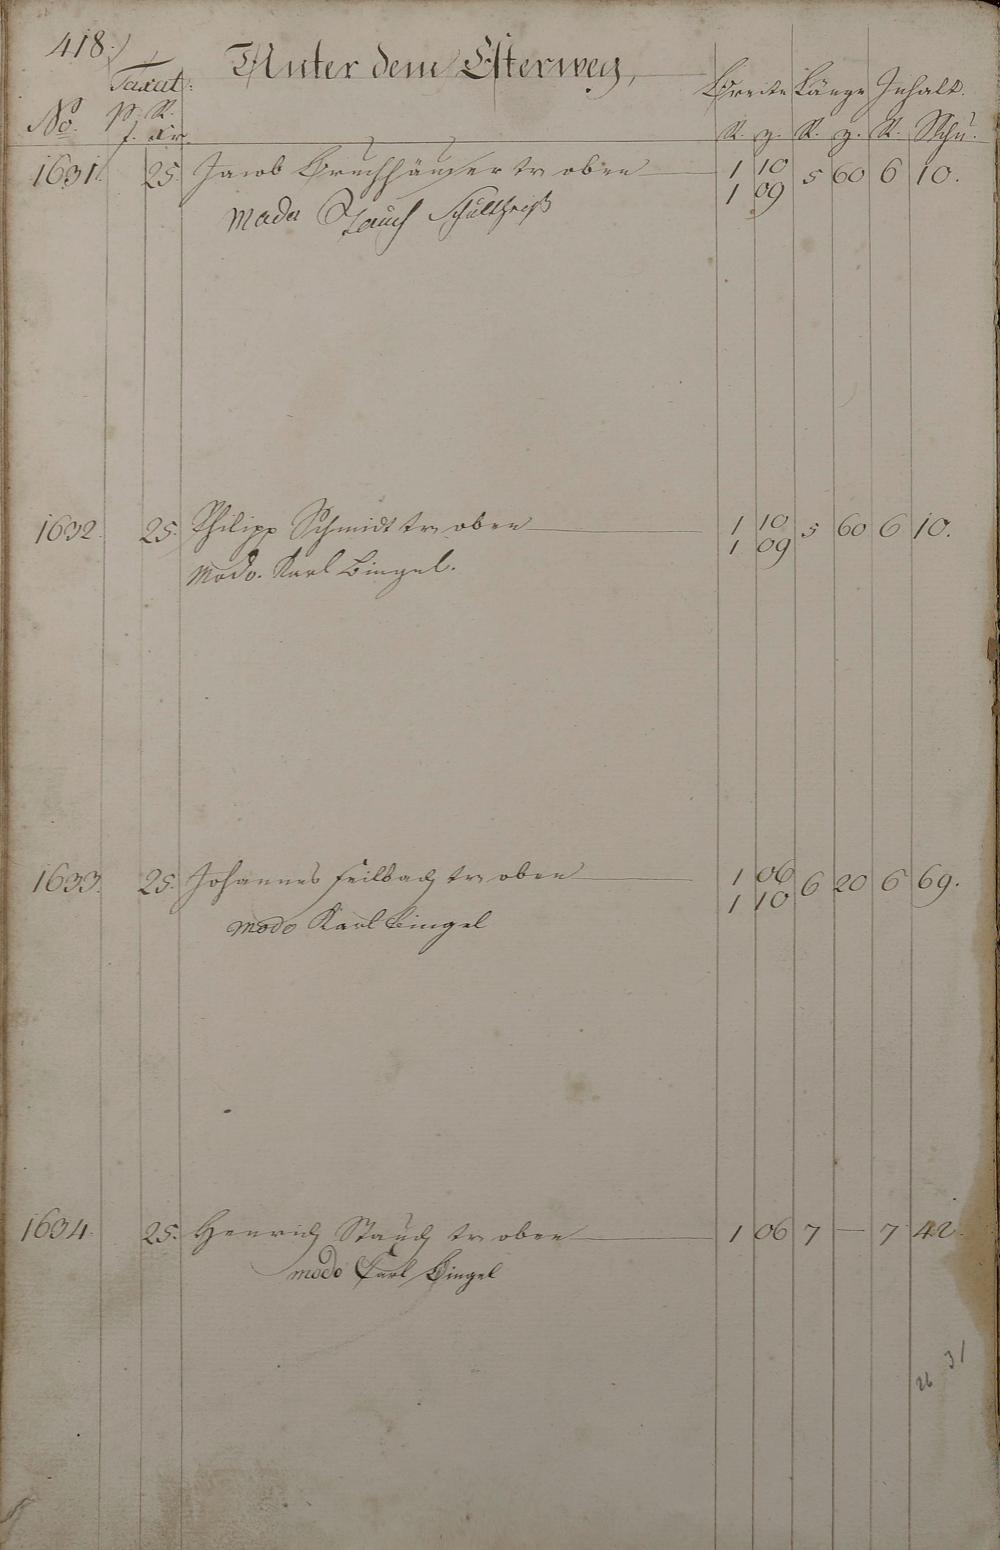 418.
Unter dem Esterweg,
Taxat: Breite Länge Inhalt.
No. p. R. R. z. R. z. R. Schu.
f. xr.
1631. 25. Jacob Bruchhäuser tr oben 1 10 5 60 6 10.
1 09
modo Stauch Schultheiß
1632. 25. Philipp Schmidt tr oben 1 10 5 60 6 10.
1 09
modo. Karl Bingel.
1633. 25. Johannes Feilbach tr oben 1 06 6 20 6 69.
1 10
modo Karl Bingel
1634. 25. Henrich Stauch tr oben 1 06 7 — 7 42.
modo Carl Bingel
26 31